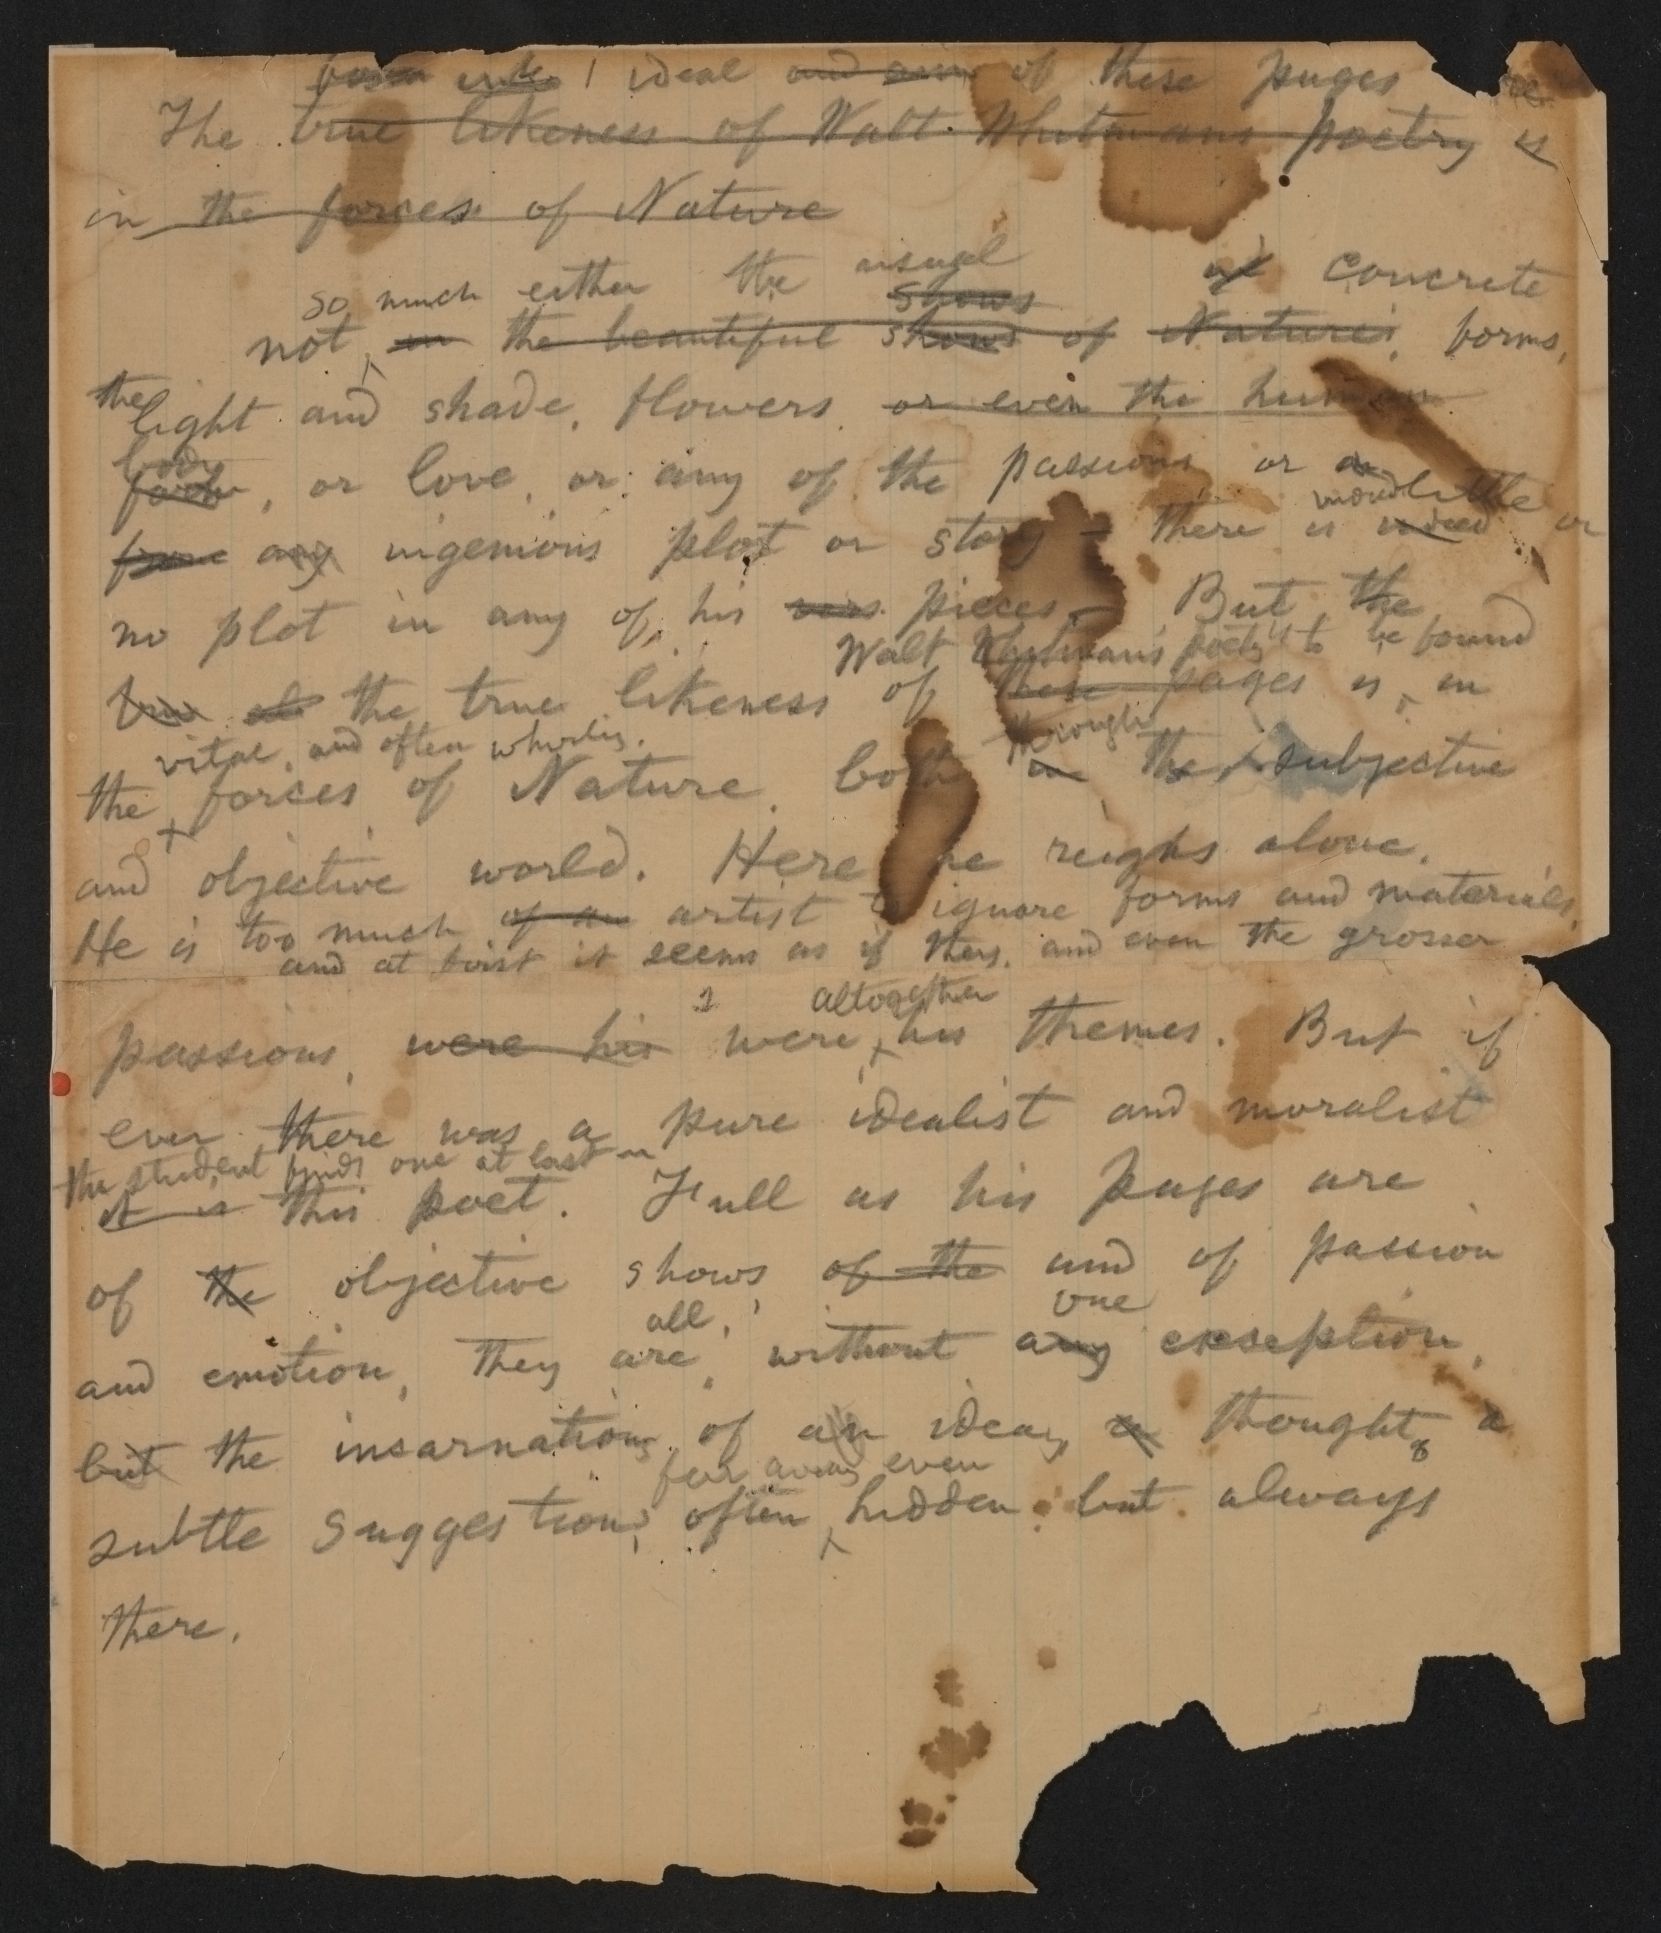 ideal and aim of these pages are
The true likeness of Walt Whitmans poetry is
in the forces of Nature
so much either the usual shows of concrete
not in the beautiful shows of Nature, forms,
the light and shade, flowers, or even the human
body
form, or love, or any of the passions or a
mond little or
any ingenious plot or story – there is indeed
no plot in any of his pieces – But the
Walt Whitman's poetry to be found
true the true likeness of these pages is in
vital, and often whirling, through
the forces of Nature, both in the subjective
and objective world. Here he reighs alone.
He is too much of an artist to ignore forms and materials,
and at first it seems as if they, and even the grosser
altogether
passions, were his were his themes. But if
ever there was a pure idealist and moralist
the student finds one at last in
it is this poet. Full as his pages are
of the objective shows of the and of passion
all, one
and emotion, they are, without any exseption,
but the insarnations of an ideas, a thoughts, a
far away even
subtle suggestions, often hidden, but always
there.